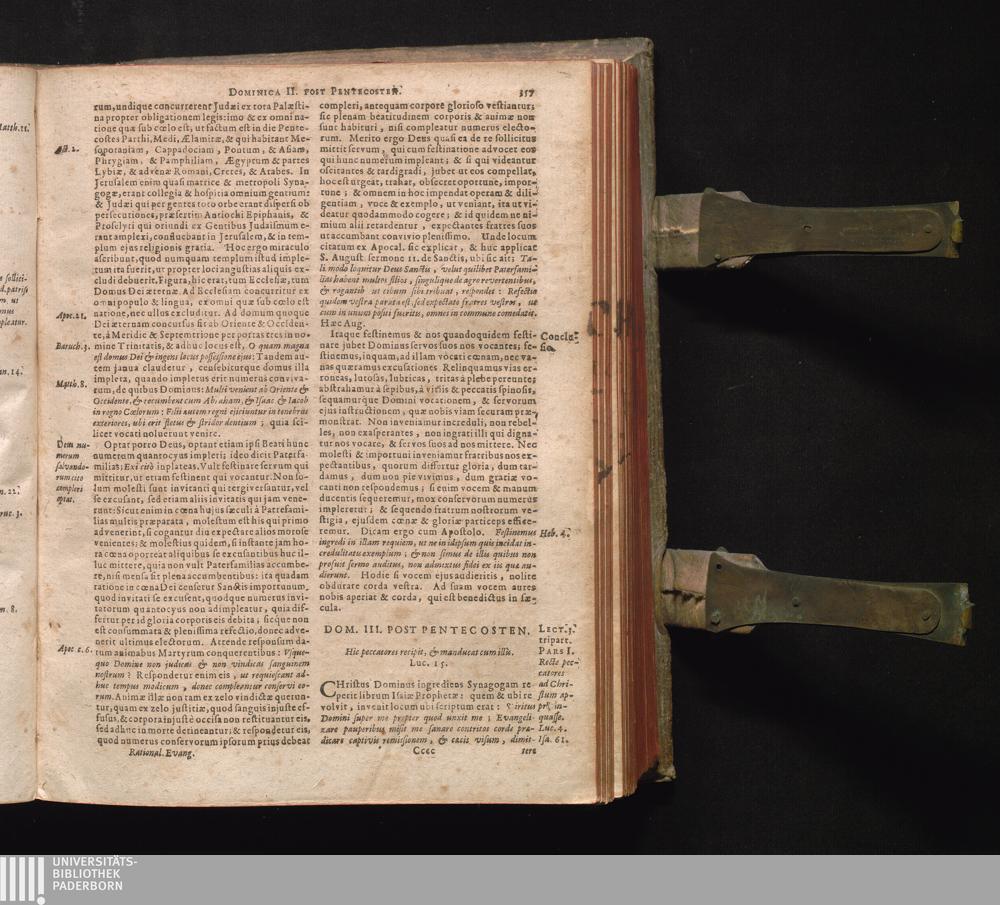 DOMINICA II. POST PENTECOSTEN. 357
rum, undique concurrerent Judæi ex tota Palæsti-
na propter obligationem legis: imo & ex omni na-
tione quæ sub cœlo est, ut factum est in die Pente-
costes Parthi, Medi, Ælamitæ, & qui habitant Me-
sopotaniam, Cappadociam, Pontum, & Asiam,
Phrygiam, & Pamphiliam, Ægyptum & partes
Lybiæ, & advenæ Romani, Cretes, & Arabes. In
Jerusalem enim quasi matrice & metropoli Syna-
gogæ, erant collegia & hospitia omnium gentium:
& Judæi qui per gentes toto orbe erant dispersi ob
persecutiones, præsertim Antiochi Epiphanis, &
Proselyti qui oriundi ex Gentibus Judaismum e-
rant amplexi, confluebant in Jerusalem, & in tem-
plum ejus religionis gratia. Hoc ergo miraculo
ascribunt, quod numquam templum istud imple-
tum ita fuerit, ut propter loci angustias aliquis ex-
cludi debuerit. Figura, hic erat, tum Ecclesiæ, tum
Domus Dei æternæ. Ad Ecclesiam concurritur ex
omni populo & lingua, ex omni quæ sub cœlo est
natione, nec ullus excluditur. Ad domum quoque
Dei æternam concursus fit ab Oriente & Occiden-
te, à Meridie & Septemtrione per portas tres in no-
mine Trinitatis, & adhuc locus est, O quam magna
est domus Dei & ingens locus possessione ejus: Tandem au-
tem janua claudetur, censebiturque domus illa
impleta, quando impletus erit numerus conviva-
rum, de quibus Dominus: Multi venient ab Oriente &
Occidente, & recumbent cum Abraham, & Isaac & Iacob
in regno Cœlorum: Filii autem regni ejicientur in tenebras
exteriores, ubi erit fletus & stridor dentium; quia sci-
licet vocati noluerunt venire.
Optat porro Deus, optant etiam ipsi Beati hunc
numerum quantocyus impleri; ideo dicit Paterfa-
milias: Exi citò in plateas. Vult festinare servum qui
mittitur, ut etiam festinent qui vocantur. Non so-
lum molesti sunt invitanti qui tergiversantur, vel
se excusant, sed etiam aliis invitatis qui jam vene-
runt: Sicut enim in cœna hujus sæculi à Patrefami-
lias multis præparata, molestum est his qui primo
advenerint, si cogantur diu expectare alios morose
venientes; & molestius quidem, si instante jam ho-
ra cœna oporteat aliquibus se excusantibus huc il-
luc mittere, quia non vult Paterfamilias accumbe-
re, nisi mensa sit plena accumbentibus: ita quadam
ratione in cœna Dei censetur Sanctis importunum,
quod invitati se excusent, quodque numerus invi-
tatorum quantocyus non adimpleatur, quia dif-
fertur per id gloria corporis eis debita; sicque non
est consummata & plenissima refectio, donec adve-
nerit ultimus electorum. Attende responsum da-
tum animabus Martyrum conquerentibus: Vsque-
quo Domine non judicas & non vindicas sanguinem
nostrum? Respondetur enim eis, ut requiescant ad-
huc tempus modicum, donec compleantur conservi eo-
rum. Animæ illæ non tam ex zelo vindictæ querun-
tur, quam ex zelo justitiæ, quod sanguis injuste ef-
fusus, & corpora injustè occisa non restituantur eis,
sed adhuc in morte detineantur: & respondetur eis,
quod numerus conservorum ipsorum prius debeat
Rational. Evang.
Act. 2.
Apoc. 21.
Baruch. 3.
Matth. 8.
Deus nu-
merum
salvando-
rum cito
compleri
optat.
Apoc c. 6.
compleri, antequam corpore glorioso vestiantur;
sic plenam beatitudinem corporis & animæ non
sunt habituri, nisi compleatur numerus electo-
rum. Merito ergo Deus quasi ea de re sollicitus
mittit servum, qui cum festinatione advocet eos
qui hunc numerum impleant; & si qui videantur
oscitantes & tardigradi, jubet ut eos compellat,
hoc est urgeat, trahat, obsecret oportune, impor-
tune; & omnem in hoc impendat operam & dili-
gentiam, voce & exemplo, ut veniant, ita ut vi-
deatur quodammodo cogere; & id quidem ne ni-
mium alii retardentur, expectantes fratres suos
ut accumbant convivio plenissimo. Unde locum
citatum ex Apocal. sic explicat, & huc applicat
S. August sermone 11. de Sanctis, ubi sic ait: Ta-
li modo loquitur Deus Sanctis, velut quilibet Paterfami-
lias habens multos filios, singulique de agro revertentibus,
& rogantib ut cibum sibi tribuat, respondet: Refectio
quidem vestra parata est, sed expectate fratres vestros, ut
cum in unum positi fueritis, omnes in commune comedatis.
Hæc Aug.
Itaque festinemus & nos quandoquidem festi-
nare jubet Dominus servos suos nos vocantes; fe-
stinemus, inquam, ad illam vocati cœnam, nec va-
nas quæramus excusationes Relinquamus vias er-
roneas, lutosas, lubricas, tritas à plebe pereunte;
abstrahamur à sepibus, à vitiis & peccatis spinosis,
sequamurque Domini vocationem, & servorum
ejus instructionem, quæ nobis viam securam præ-
monstrat. Non inveniamur increduli, non rebel-
les, non exasperantes, non ingrati illi qui digna-
tur nos vocare, & servos suos ad nos mittere. Nec
molesti & importuni inveniamur fratribus nos ex-
pectantibus, quorum differtur gloria, dum tar-
damus, dum non pie vivimus, dum gratiæ vo-
canti non respondemus; si enim vocem & manum
ducentis sequeremur, mox conservorum numerus
impleretur; & sequendo fratrum nostrorum ve-
stigia, ejusdem cœnæ & gloriæ particeps effice-
remur. Dicam ergo cum Apostolo. Festinemus
ingredi in istam requiem, ut ne in idipsum quis incidat in-
credulitatis exemplum; & non simus de illis quibus non
profuit sermo auditus, non admixtus fidei ex iis quæ au-
dierunt. Hodie si vocem ejus audieritis, nolite
obdurare corda vestra. Ad suam vocem aures
nobis aperiat & corda, qui est benedictus in sæ-
cula.
Conclu-
sio.
Heb. 4.
DOM. III. POST PENTECOSTEN.
Hic peccatores recipit, & manducat cum illis.
Luc. 15.
CHristus Dominus ingrediens Synagogam re-
perit librum Isaiæ Prophetæ: quem & ubi re
volvit, invenit locum ubi scriptum erat: Spiritus
Domini super me propter quod unxit me; Evangeli-
zare pauperibus misit me sanare contritos corde præ-
dicare captivis remissionem, & cæcis visum, dimit-
Cccc
tere
LECT. 3.
tripart.
PARS I.
Recte pec-
catores
ad Chri-
stum ap-
propin-
quasse.
Luc. 4.
Isa. 61.
Matth. 22.
e sollici-
d. patrisf
m. ut
pleatur.
n. 14.
n. 22.
ruc. 3.
n. 8.
UNIVERSITÄTS-
BIBLIOTHEK
PADERBORN